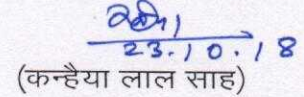 23.10.18
(कन्हैया लाल साह)